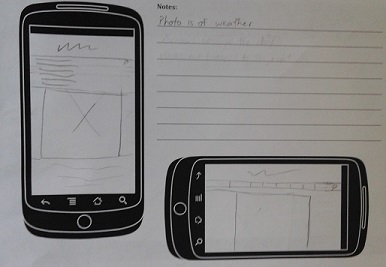 Notes:
Photo is of weather